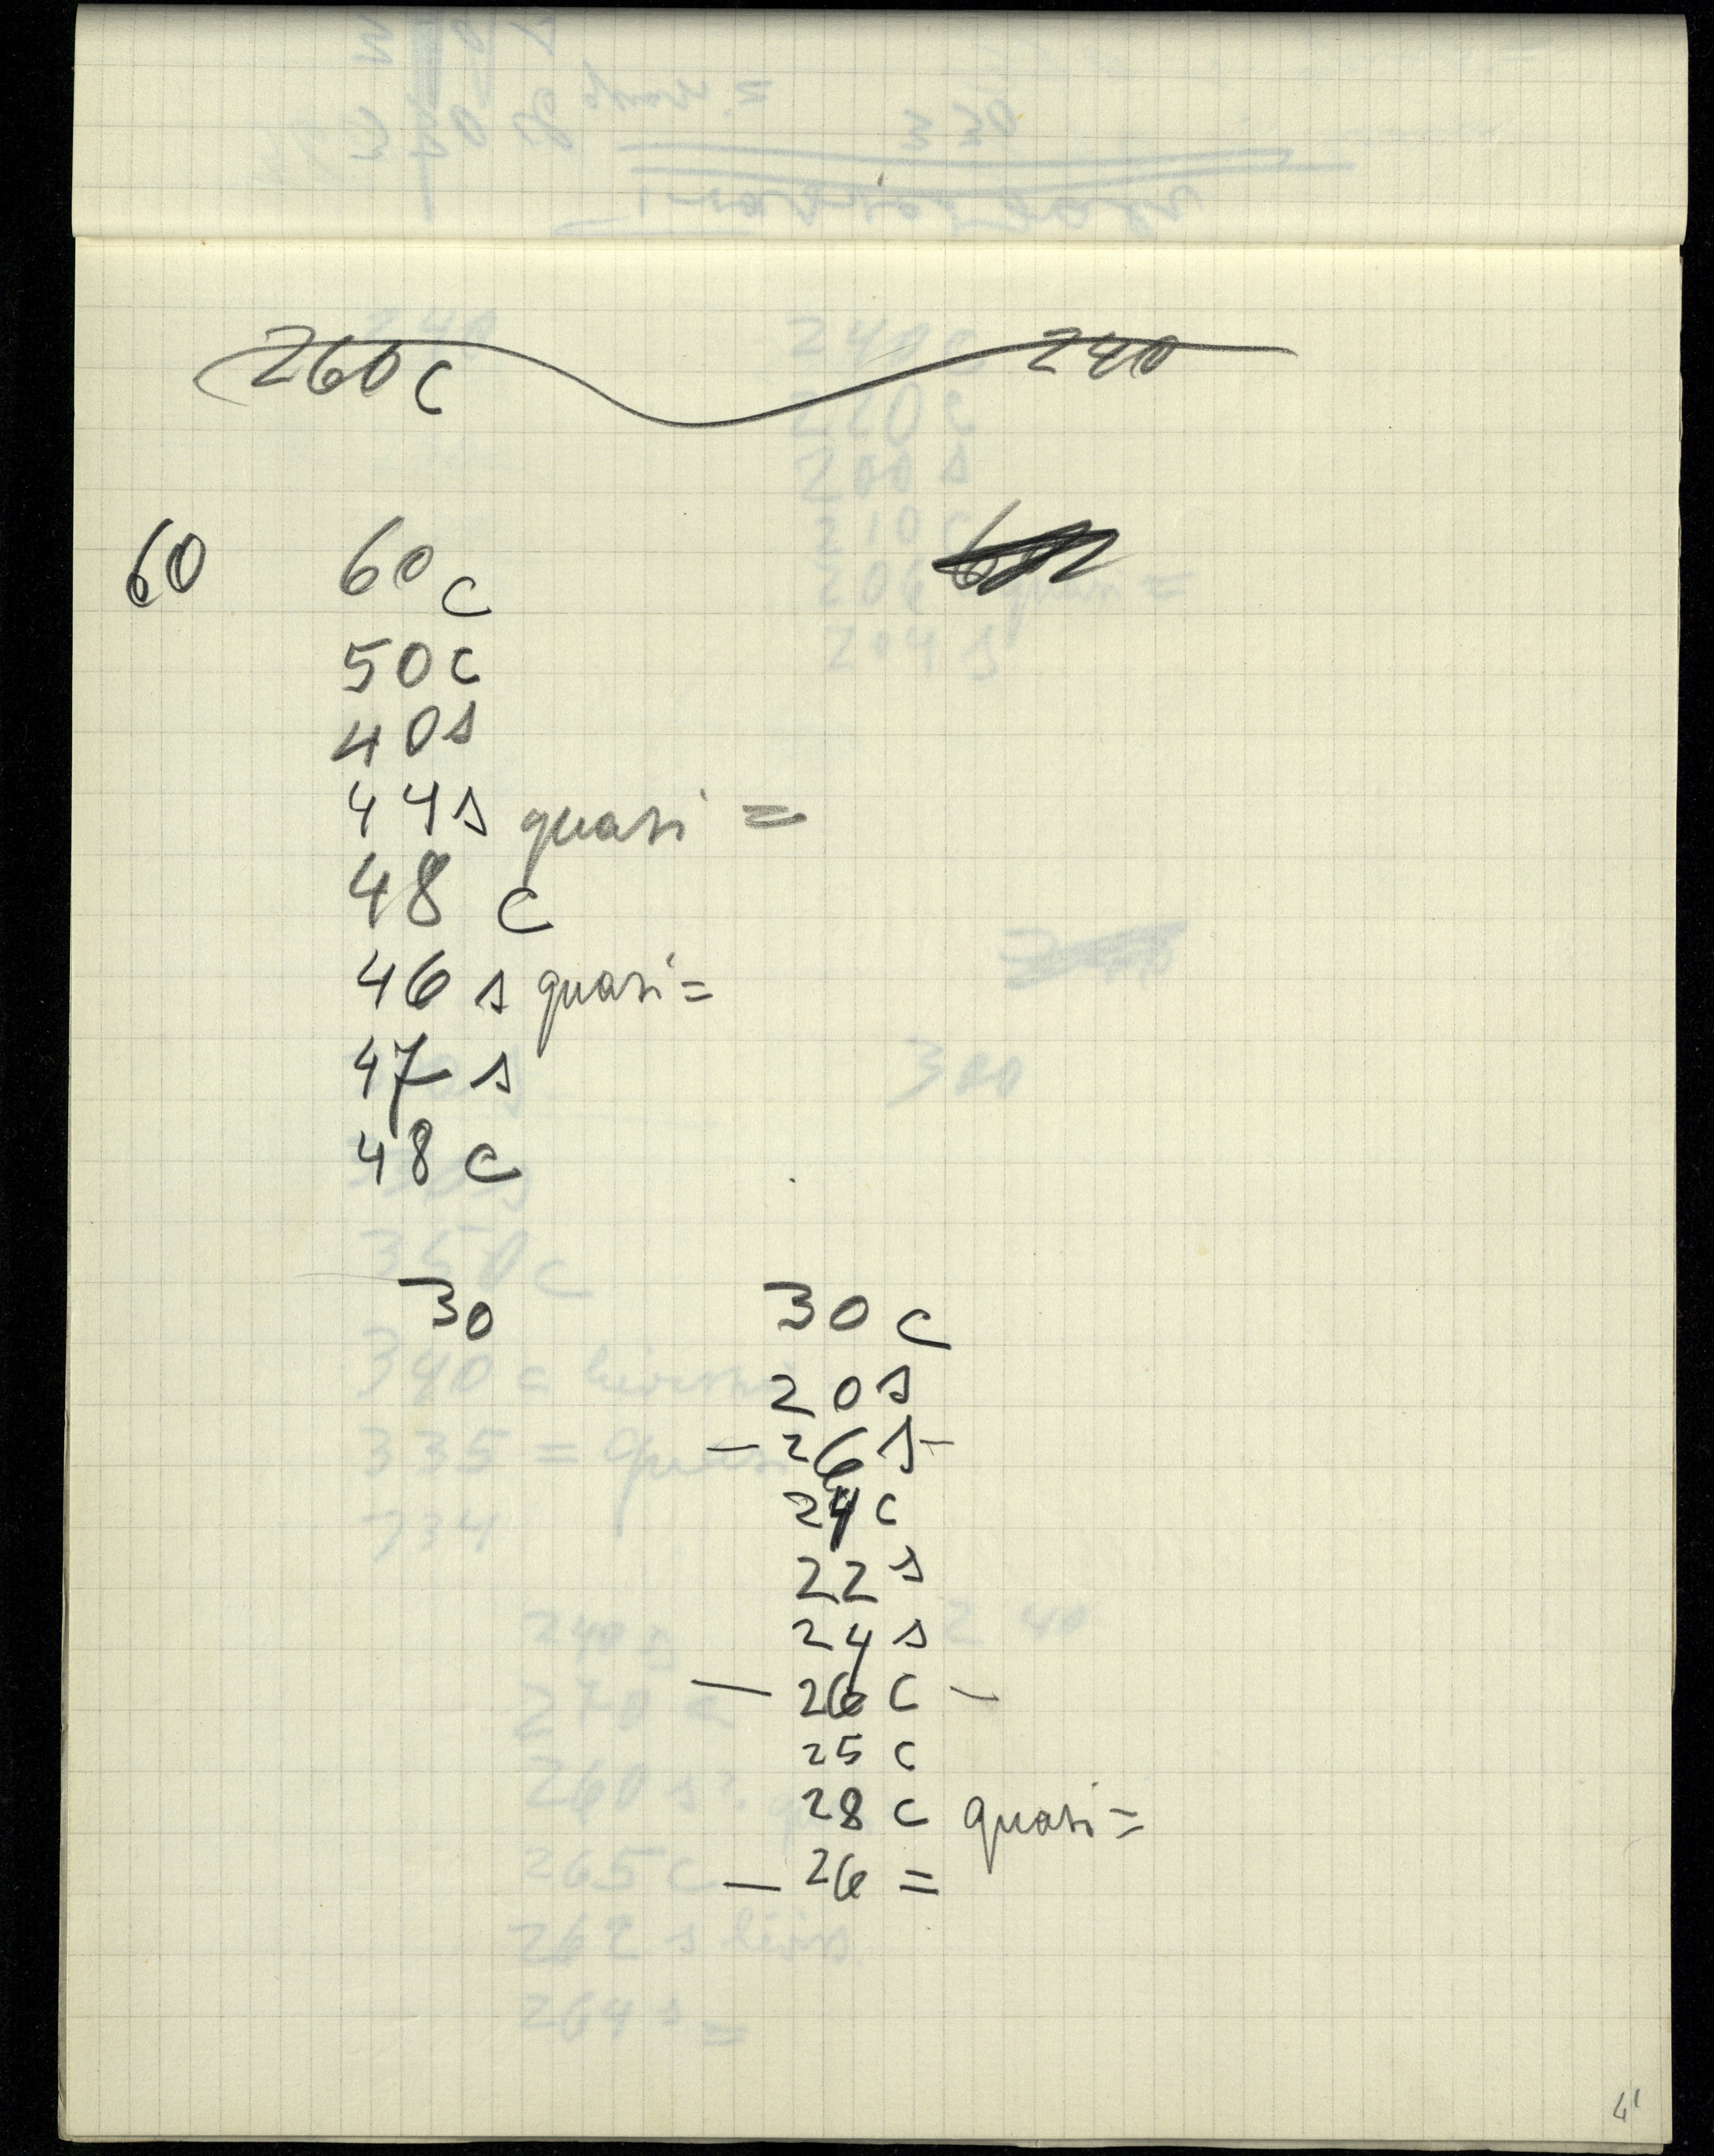 260c 240
60 60 c
50 c
40 s
44 s quasi =
48 c
46 s quasi =
47 s
48 c
30 30 c
20 s
— 26 s —
24 c
22 s
24 s
— 26 c —
25 c
28 c quasi =
— 26 =